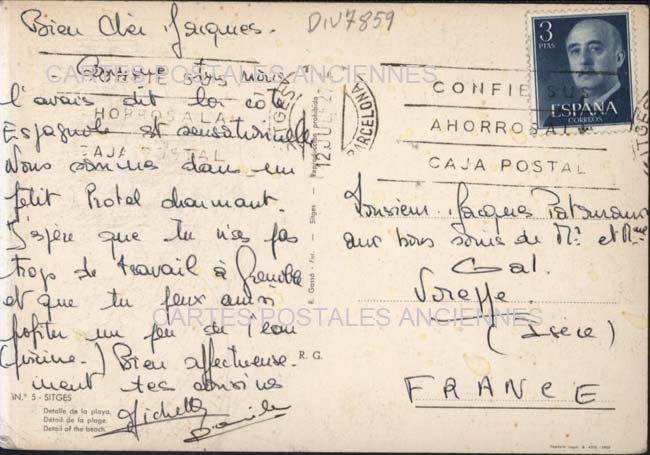 DIV7859
Bien Cher Jacques.
Comme tu nous
l'avais dit la côte
Espagnole est sensationnelle
Nous sommes dans un
petit hotel charmant.
J'espère que tu n'as pas
trop de travail à Grenoble
et que tu peux aussi
profiter un peu de l'eau
(piscine.) Bien affectueuse-
ment tes cousines
Michelle
Danièle
N.º 5 - SITGES
Detalle de la playa.
Détail de la plage.
Detail of the beach.
R. G.
R. Gassó - Fot. - Sitges - Reproducción prohibida
SITGES
BARCELONA
CONFIE SUS
AHORROS A LA
CAJA POSTAL
AHORROS A LA
CAJA POSTAL
3
PTAS
ESPAÑA
CORREOS
SITGES
Monsieur Jacques
aux bons soins de Mr et Mme
Gal.
Voreppe.
(Isère)
FRANCE
CARTES POSTALES ANCIENNES
CARTES POSTALES ANCIENNES